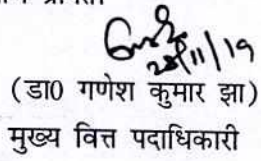 28/11/19
(डा0 गणेश कुमार झा)
मुख्य वित्त पदाधिकारी